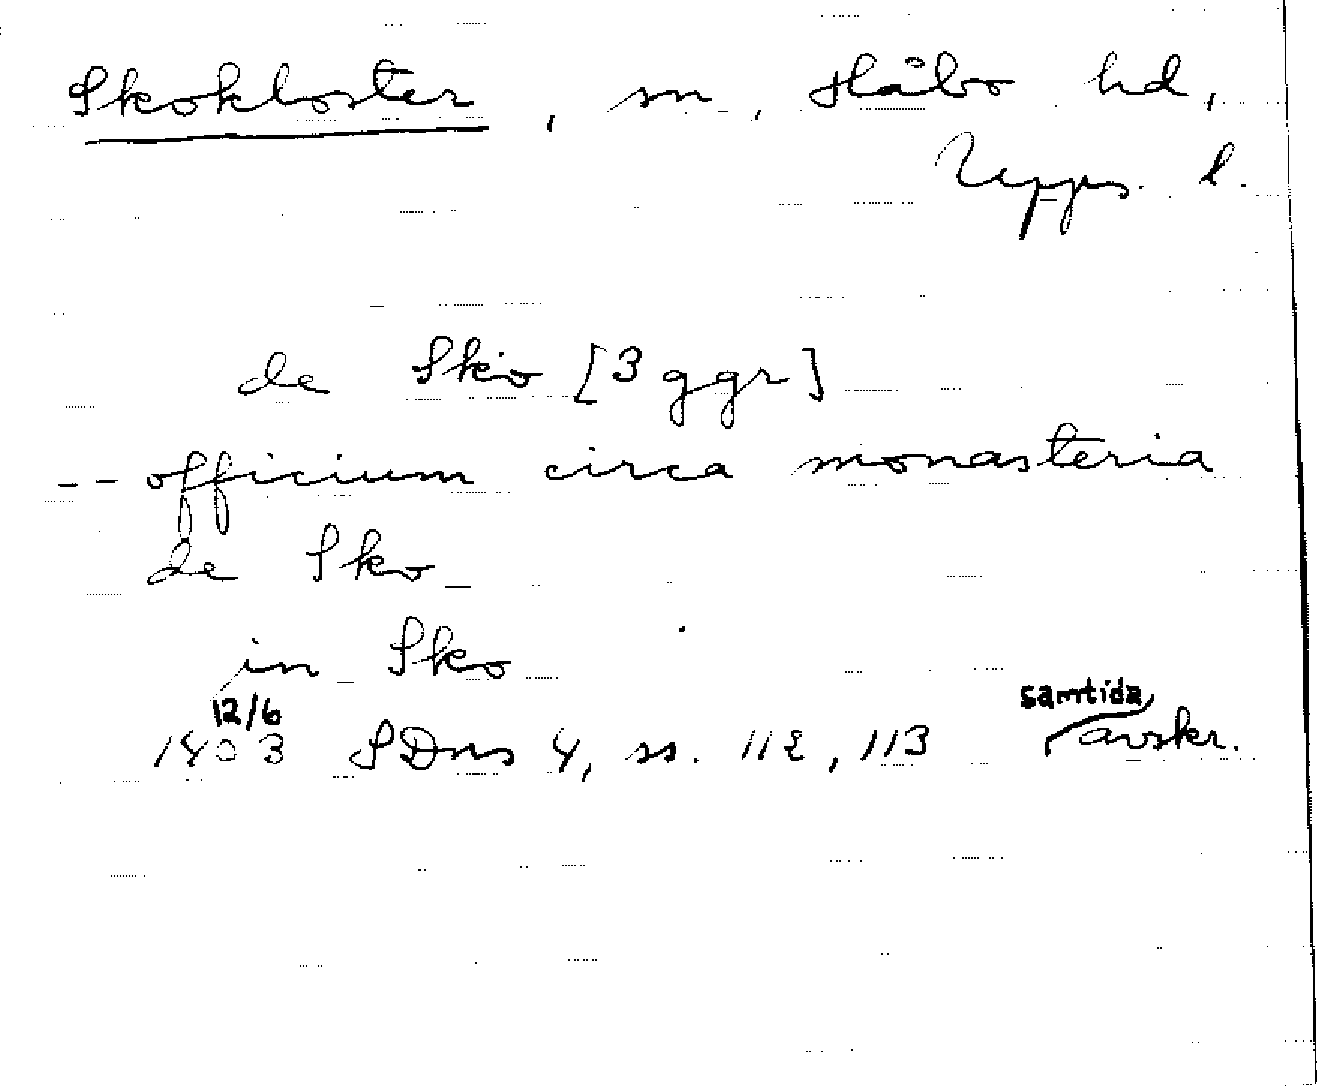 Skokloster, sn, Håbo hd,
Upps. l.
de Sko [3 ggr]
-- officium circa monasteria
de Sko
in Sko
12/6
1403 SDns 4, ss. 112, 113 samtida avskr.